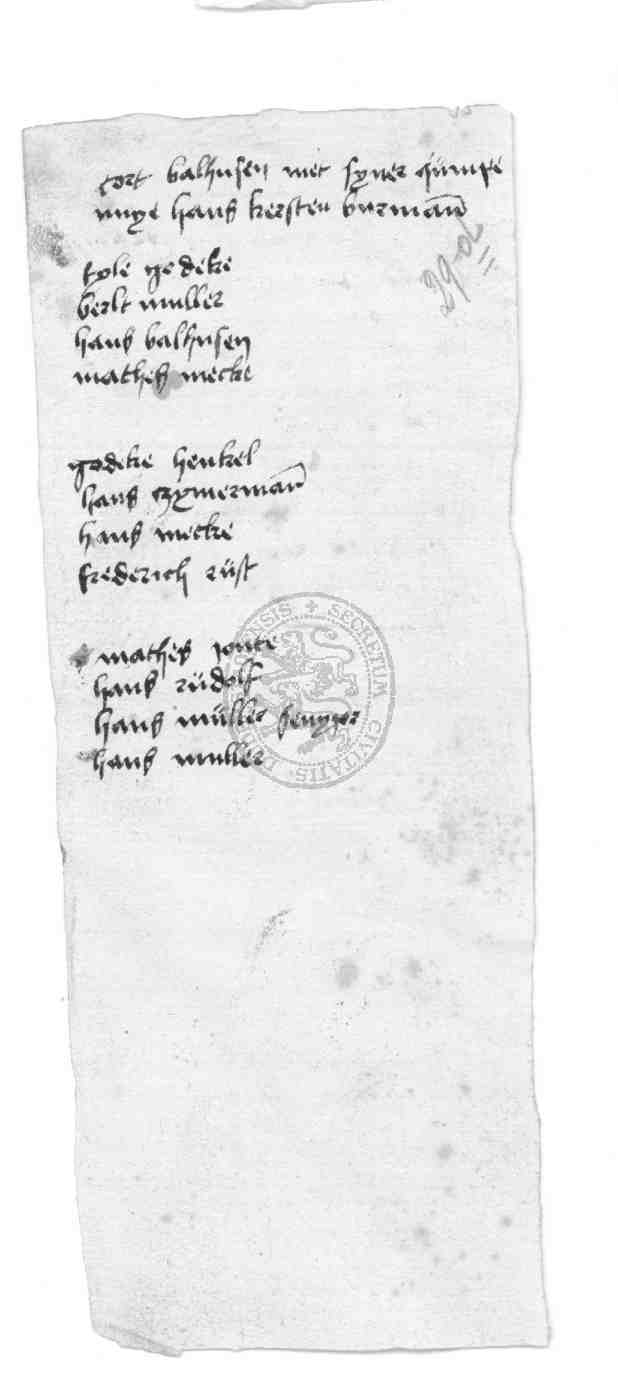 cort balhusen met syner
nuye hans kersten burman̄
tyle gedeke
berlt muller
hans balhusen
mathes mecke
godeke henkel
hans czymerman̄
hans mecke
frederich rüst
mathes
hans rüdolff
hans müller
hans muller
SECRETUM CIVITATIS